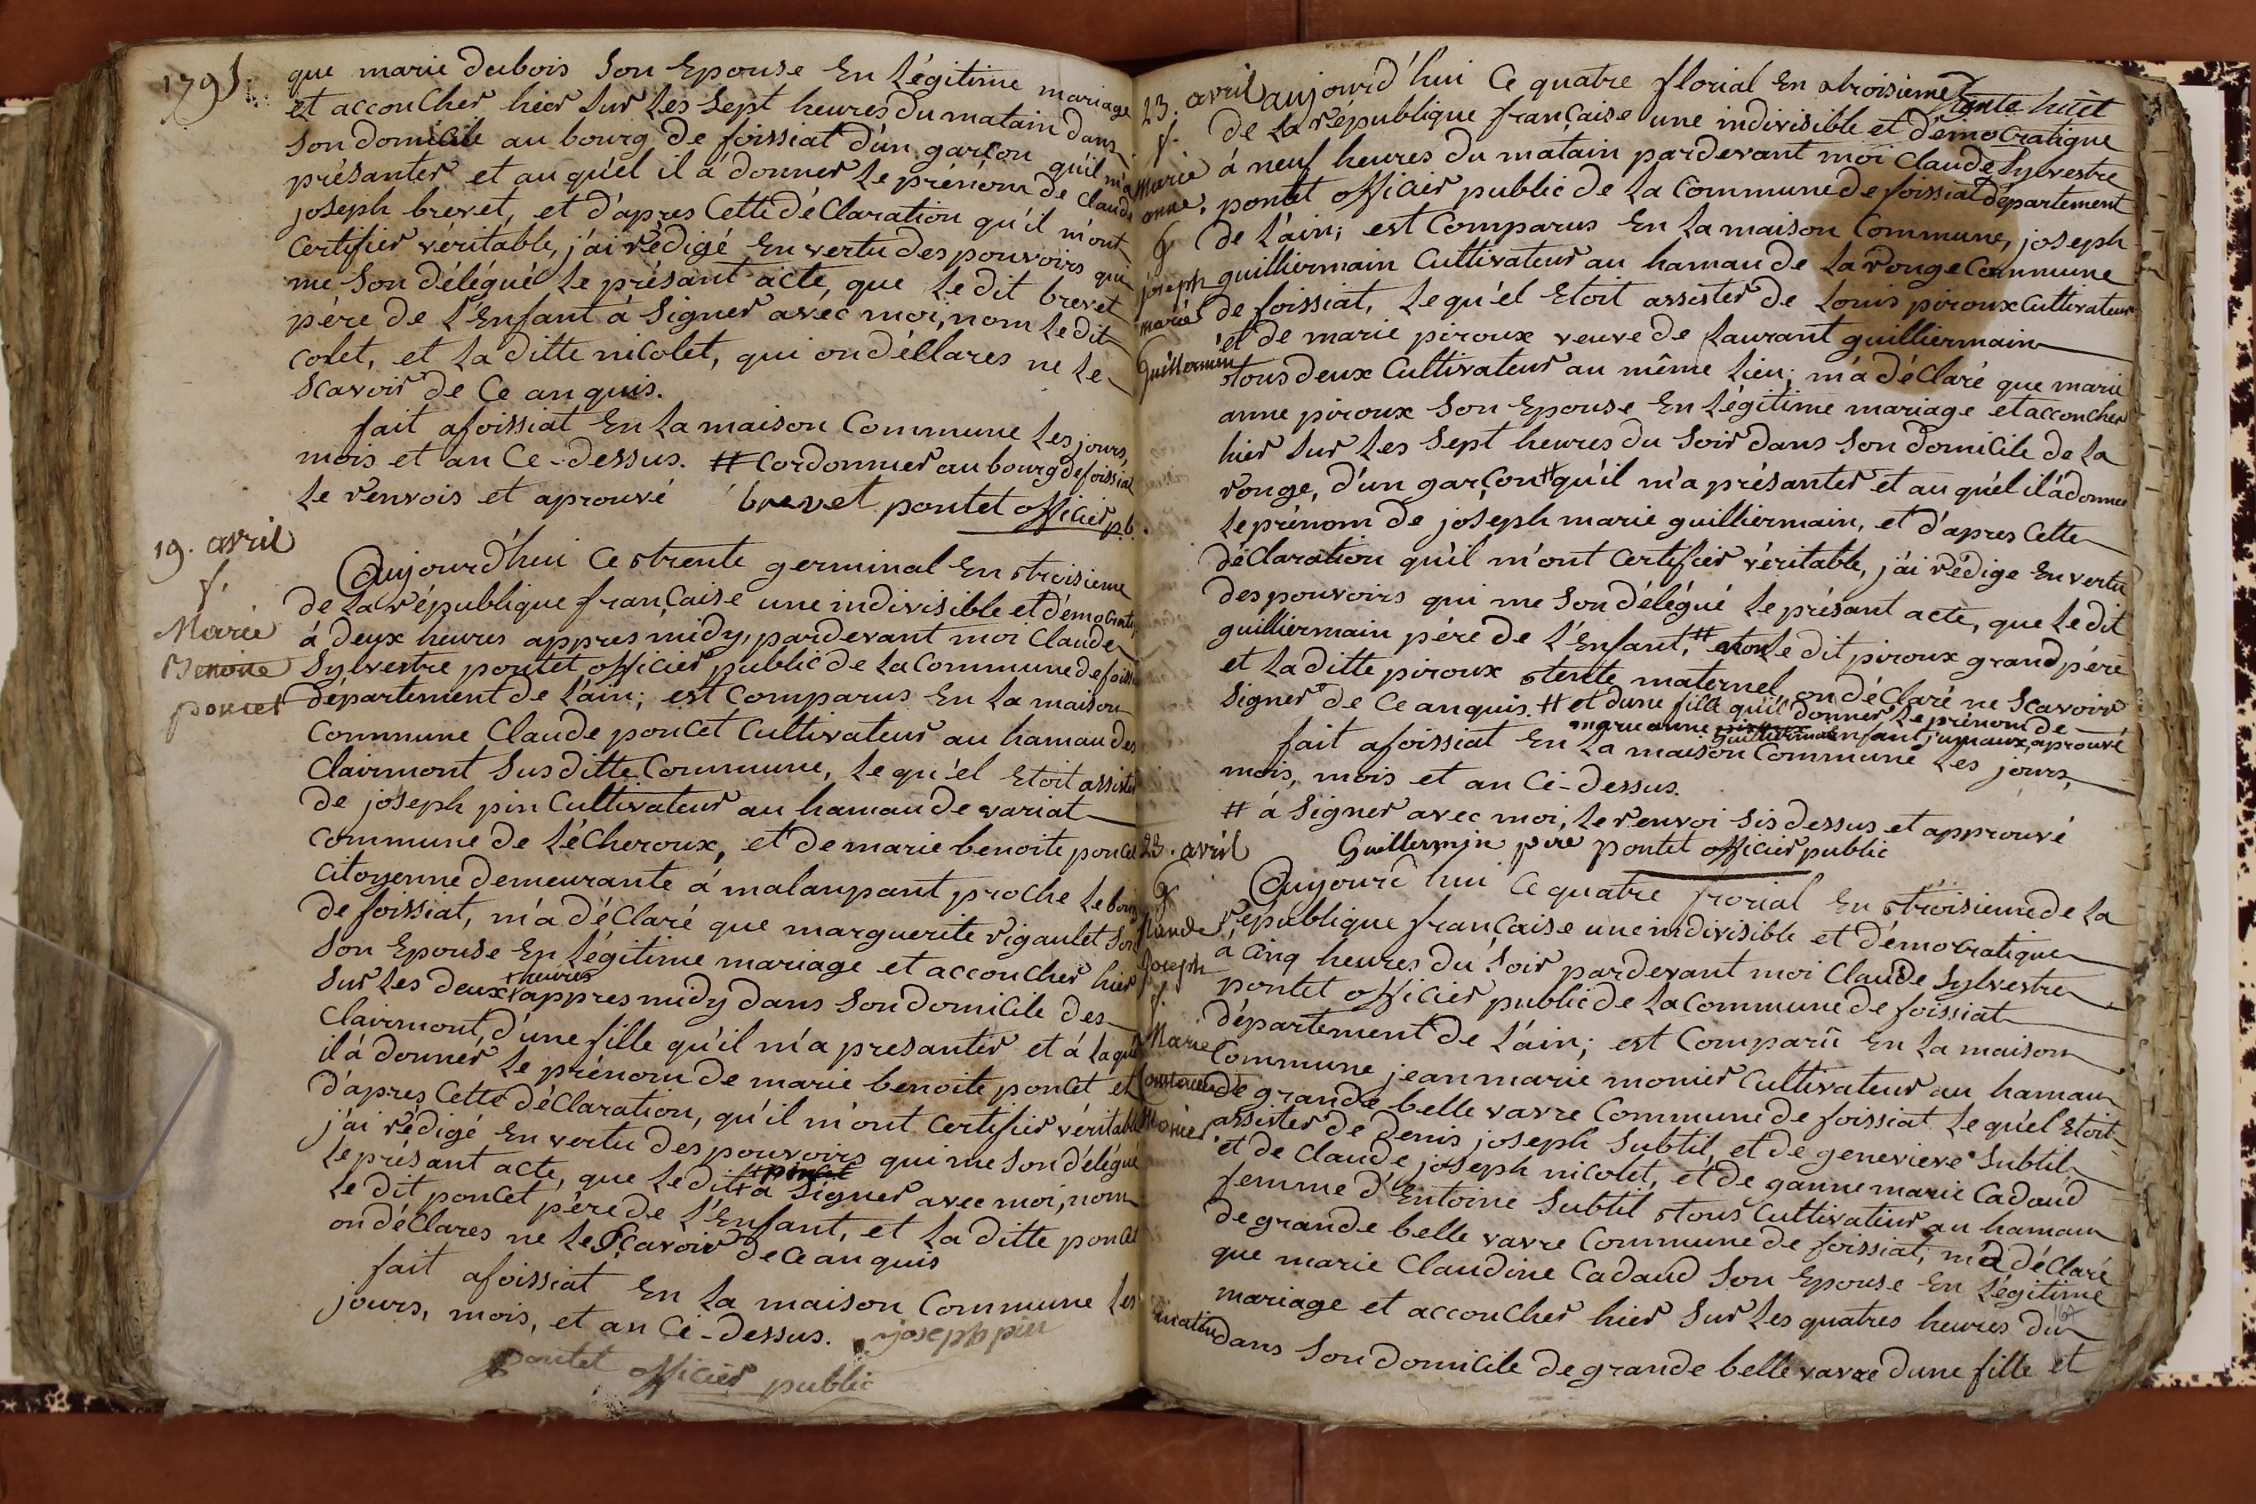 1795.
que marie dubois Son Epouse En Légitime mariage
et accoucher hier Sur Les Sept heures du matain dans
Son domicile au bourg de foissiat d'un garçon qu'il m'a
présanter et au qu'el il á donner Le prénom de Claude
joseph brevet, et d'apres Cette déClaration qu'il m'ont
Certifier véritable, j'ai rédigé En vertu des pouvoirs qui
me Son délégué Le présant acte, que Le dit brevet
pére de L'Enfant á Signer avéc moi, nom Le dit
colet, et La ditte nicolet, qui on déllares ne Le
Scavoir de Ce an quis.
fait a foissiat En La maison Commune Les jours,
mois et an Ce-dessus. # Cordonnier au bourg de foissiat
Le renvois et aprouvé brevet pontet officier p.b.
19. avril
f.
Marie
Benoite
poncet
Aujourd'hui Ce trente germinal En troisieme
de La république française une indivisible et démocratiq
á deux heures appres midy, pardevant moi Claude
Sylvestre pontet officier public de La Commune de foissi
département de L'ain; est Comparus En La maison
Commune Claude ponCet Cultivateur au hamau des
Clairmont Sus ditte Commune, Le qu'el Etoit assister
de joseph pin Cultivateur au hamau de variat
Commune de LéCheroux, et de marie benoite poncet
Citoyenne demeurante á malaupant proche Le bourg
de foissiat, m'a déClaré que marguerite rigaulet Son
Son Epouse En Légitime mariage et accoucher hier
Sur Les deux heures appres midy dans Son domicile des
Clairmont, d'une fille qu'il m'a presanter et á Laqu'el
il á donner Le prénom de marie benoite poncet et
d'apres Cette déClaration, qu'il m'ont Certifier véritable
j'ai rédigé En vertu des pouvoirs qui me Son délégué
Le présant acte, que Le dit pin á Signer avec moi, nom
Le dit poncet pére de L'Enfant, et La ditte poncet
on déClares ne Le Scavoir de Ce an quis
fait a foissiat En La maison Commune Les
jours, mois, et an Ci-dessus. joseph pin
pontet officier public
23. avril
f.
Marie
anne.
G
joseph
marie
Guillermin
aujourd'hui Ce quatre florial En troisieme
de La république française une indivisible et démocratique
á neuf heures du matain pardevant moi Claude Sylvestre
pontet officier public de La Commune de foissiat département
de L'ain; est Comparus En La maison Commune, joseph
guilliermain Cultivateur au hamau de La ronge Commune
de foissiat, Le qu'el Etoit assister de Louis piroux Cultivateur
et de marie piroux veuve de Laurant guilliermain
tous deux Cultivateur au même Lieu; m'a déClaré que marie
anne piroux Son Epouse En Légitime mariage et accoucher
hier Sur Les Sept heures du Soir dans Son domicile de La
ronge, d'un garçon # qu'il m'a présanter et au qu'el il á donner
Le prénom de joseph marie guilliermain, et d'apres Cette
déClaration qu'il m'ont Certifier véritable, j'ai rédige En vertu
des pouvoirs qui me Son délégué Le présant acte, que Le dit
guilliermain pére de L'Enfant, # Le dit piroux grand pére
et La ditte piroux tente maternel, on déClaré ne Scavoir
Signer de Ce an quis. # et d'une fille qu'il donner Le prénom de
marie anne enfant jumaux, aprouvé
fait a foissiat En La maison Commune Les jours,
mois, mois et an Ci-dessus.
# á Signer avec moi, Le renvoi sis dessus et approuvé
Guillermin pere pontet officier public
23. avril
G
Claude
Joseph
f.
Marie
Monier
Aujourd'hui Ce quatre frorial En troisieme de La
république française une indivisible et démocratique
á Cinq heures du Soir pardevant moi Claude Sylvestre
pontet officier public de La Commune de foissiat
département de L'ain; est Comparû En La maison
Commune jean marie monier Cultivateur au hamau
de grande belle vavre Commune de foissiat Le qu'el Etoit
assister de Denis joseph Subtil, et de genevieve Subtil
et de Claude joseph nicolet, et de ganne marie Cadaud
femme d'Entoine Subtil tous Cultivateur au hamau
de grande belle vavre Commune de foissiat, m'a déClaré
que marie Claudine Cadaud Son Epouse En Légitime
mariage et accoucher hier Sur Les quatres heures du
matin dans Son domicile de grande belle vavre d'une fille et